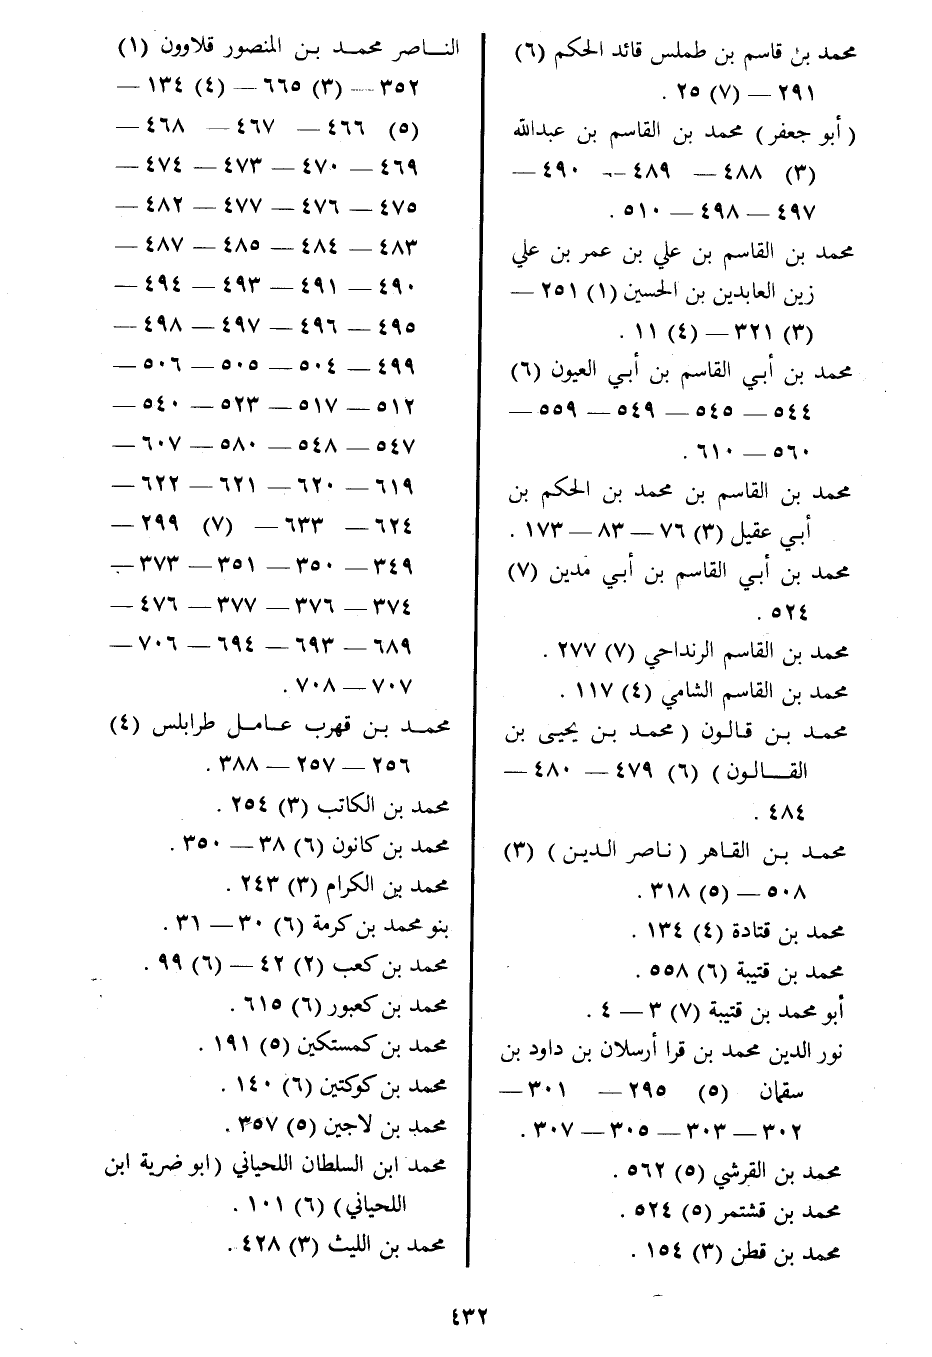 محمد بن قاسم بن طملس قائد الحكم (٦)
٢٩١ — (٧) ٢٥ .
( أبو جعفر ) محمد بن القاسم بن عبدالله
(٣) ٤٨٨ — ٤٨٩ — ٤٩٠ —
٤٩٧ — ٤٩٨ — ٥١٠ .
محمد بن القاسم بن علي بن عمر بن علي
زين العابدين بن الحسين (١) ٢٥١ —
(٣) ٣٢١ — (٤) ١١ .
محمد بن أبي القاسم بن أبي العيون (٦)
٥٤٤ — ٥٤٥ — ٥٤٩ — ٥٥٩ —
٥٦٠ — ٦١٠ .
محمد بن القاسم بن محمد بن الحكم بن
أبي عقيل (٣) ٧٦ — ٨٣ — ١٧٣ .
محمد بن أبي القاسم بن أبي مدين (٧)
٥٢٤ .
محمد بن القاسم الرنداحي (٧) ٢٧٧ .
محمد بن القاسم الشامي (٤) ١١٧ .
محمد بن قالون ( محمد بن يحيى بن
القالون ) (٦) ٤٧٩ — ٤٨٠ —
٤٨٤ .
محمد بن القاهر ( ناصر الدين ) (٣)
٥٠٨ — (٥) ٣١٨ .
محمد بن قتادة (٤) ١٣٤ .
محمد بن قتيبة (٦) ٥٥٨ .
أبو محمد بن قتيبة (٧) ٣ — ٤ .
نور الدين محمد بن قرا أرسلان بن داود بن
سقمان (٥) ٢٩٥ — ٣٠١ —
٣٠٢ — ٣٠٣ — ٣٠٥ — ٣٠٧ .
محمد بن القرشي (٥) ٥٦٢ .
محمد بن قشتمر (٥) ٥٢٤ .
محمد بن قطن (٣) ١٥٤ .
الناصر محمد بن المنصور قلاوون (١)
٣٥٢ — (٣) ٦٦٥ — (٤) ١٣٤ —
(٥) ٤٦٦ — ٤٦٧ — ٤٦٨ —
٤٦٩ — ٤٧٠ — ٤٧٣ — ٤٧٤ —
٤٧٥ — ٤٧٦ — ٤٧٧ — ٤٨٢ —
٤٨٣ — ٤٨٤ — ٤٨٥ — ٤٨٧ —
٤٩٠ — ٤٩١ — ٤٩٣ — ٤٩٤ —
٤٩٥ — ٤٩٦ — ٤٩٧ — ٤٩٨ —
٤٩٩ — ٥٠٤ — ٥٠٥ — ٥٠٦ —
٥١٢ — ٥١٧ — ٥٢٣ — ٥٤٠ —
٥٤٧ — ٥٤٨ — ٥٨٠ — ٦٠٧ —
٦١٩ — ٦٢٠ — ٦٢١ — ٦٢٢ —
٦٢٤ — ٦٣٣ — (٧) ٢٩٩ —
٣٤٩ — ٣٥٠ — ٣٥١ — ٣٧٣ —
٣٧٤ — ٣٧٦ — ٣٧٧ — ٤٧٦ —
٦٨٩ — ٦٩٣ — ٦٩٤ — ٧٠٦ —
٧٠٧ — ٧٠٨ .
محمد بن قهرب عامل طرابلس (٤)
٢٥٦ — ٢٥٧ — ٣٨٨ .
محمد بن الكاتب (٣) ٢٥٤ .
محمد بن كانون (٦) ٣٨ — ٣٥٠ .
محمد بن الكرام (٣) ٢٤٣ .
بنو محمد بن كرمة (٦) ٣٠ — ٣١ .
محمد بن كعب (٢) ٤٢ — (٦) ٩٩ .
محمد بن كعبور (٦) ٦١٥ .
محمد بن كمستكين (٥) ١٩١ .
محمد بن كوكتين (٦) ١٤٠ .
محمد بن لاجين (٥) ٣٥٧ .
محمد ابن السلطان اللحياني (ابو ضربة ابن
اللحياني) (٦) ١٠١ .
محمد بن الليث (٣) ٤٢٨ .
٤٣٢